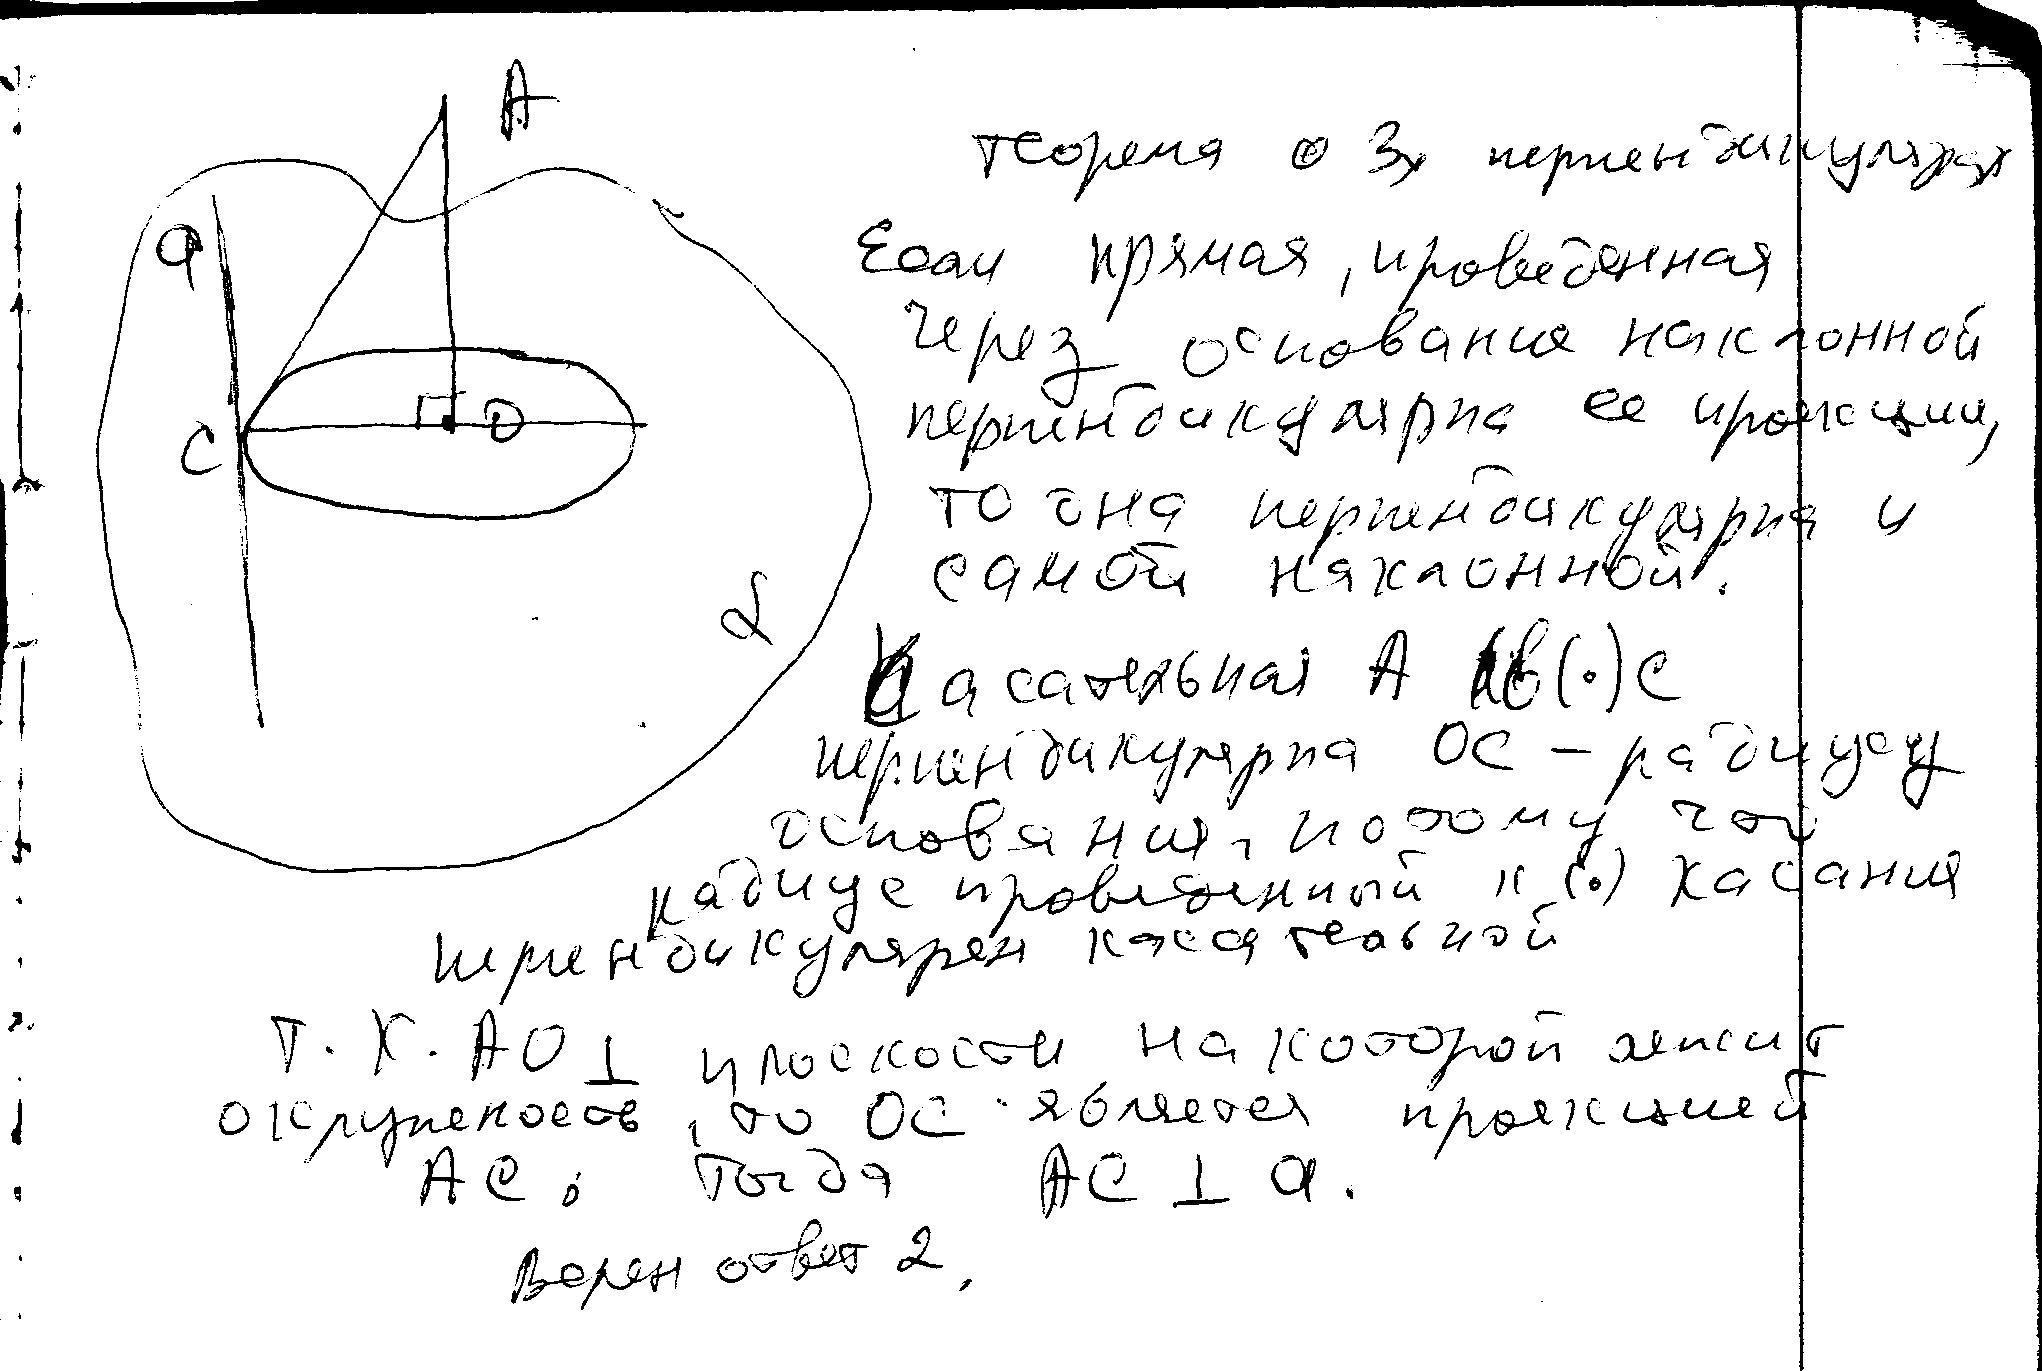 A
a
C
O
α
теорема о 3х перпендикулярах
Если прямая, проведенная
через основание наклонной
перпендикулярна ее проекции,
то она перпендикулярна и
самой наклонной.
Касательная A в (·) C
перпендикулярна OC – радиусу
основания, потому что
радиус проведенный к (·) касания
перпендикулярен касательной
т.к. AO ⊥ плоскости на которой лежит
окружность, то OC является проекцией
AC; тогда AC ⊥ a.
Верен ответ 2.